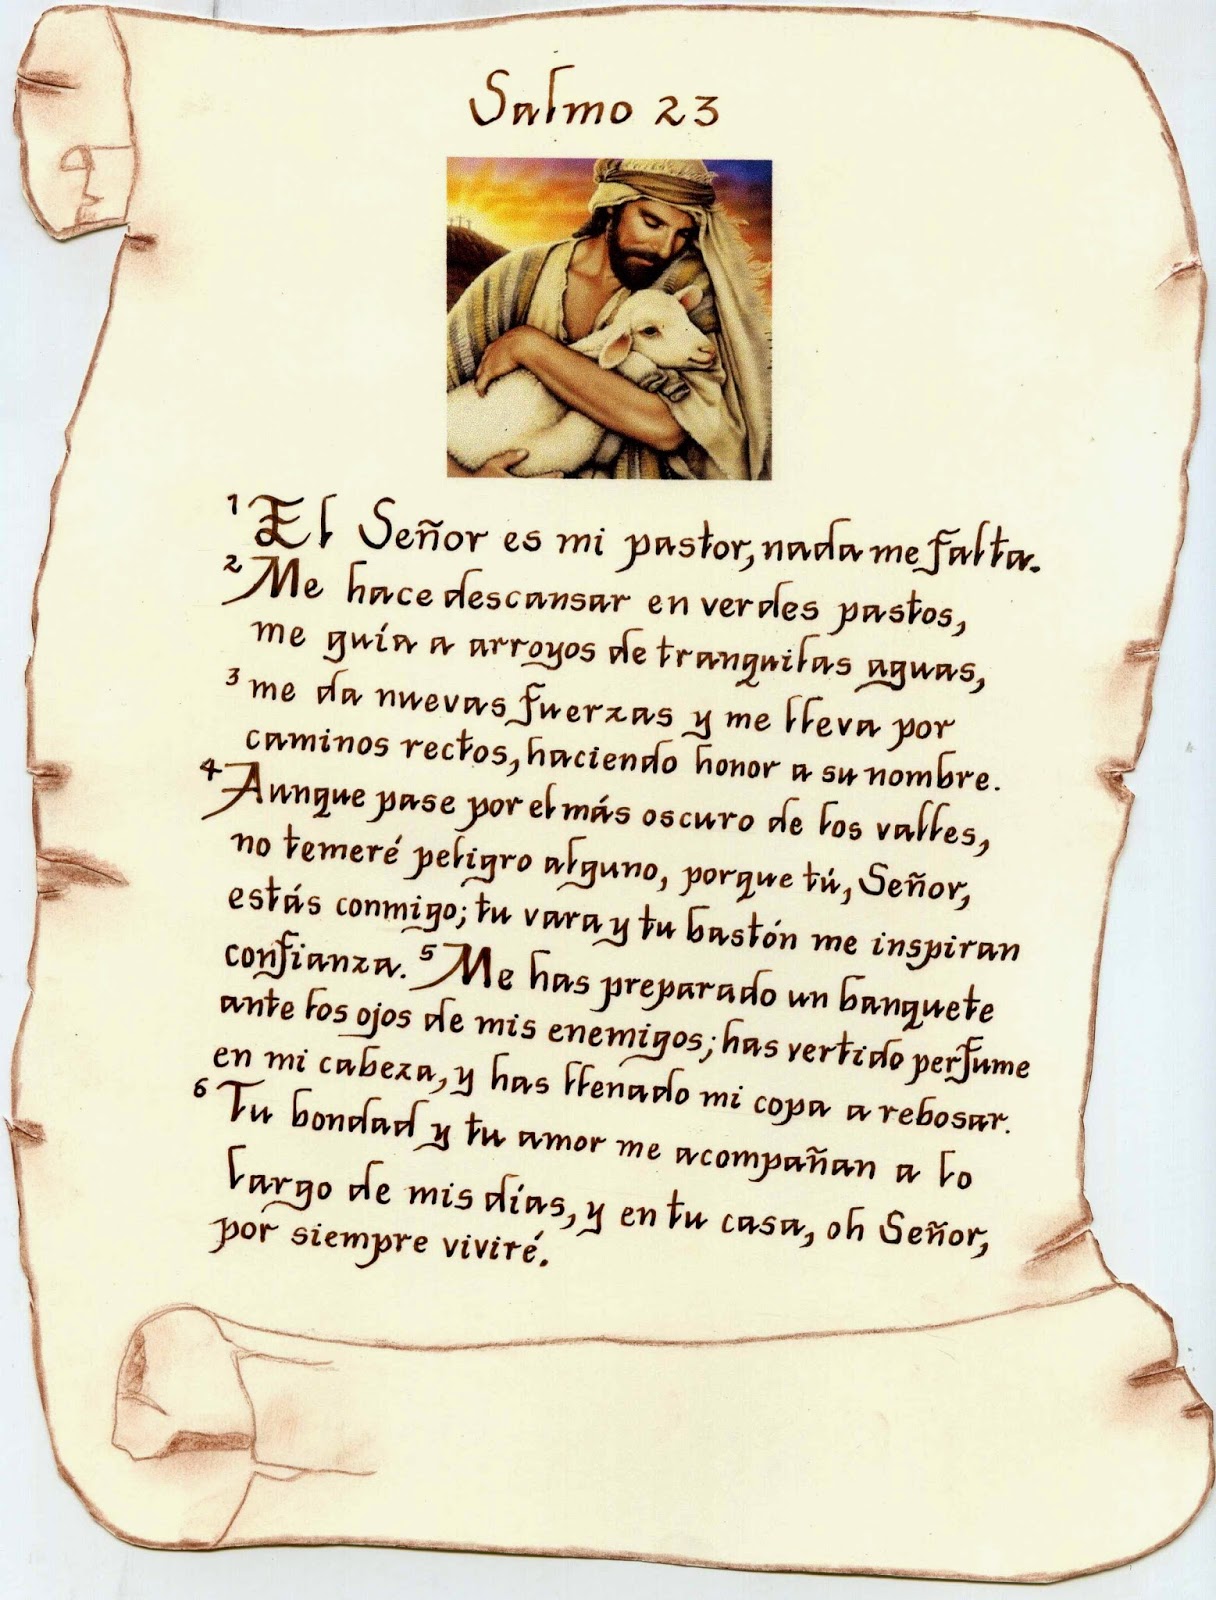 Salmo 23
1 El Señor es mi pastor, nada me falta.
2 Me hace descansar en verdes pastos,
me guía a arroyos de tranquilas aguas,
3 me da nuevas fuerzas y me lleva por
caminos rectos, haciendo honor a su nombre.
4 Aunque pase por el más oscuro de los valles,
no temeré peligro alguno, porque tú, Señor,
estás conmigo; tu vara y tu bastón me inspiran
confianza. 5 Me has preparado un banquete
ante los ojos de mis enemigos; has vertido perfume
en mi cabeza, y has llenado mi copa a rebosar.
6 Tu bondad y tu amor me acompañan a lo
largo de mis días, y en tu casa, oh Señor,
por siempre viviré.